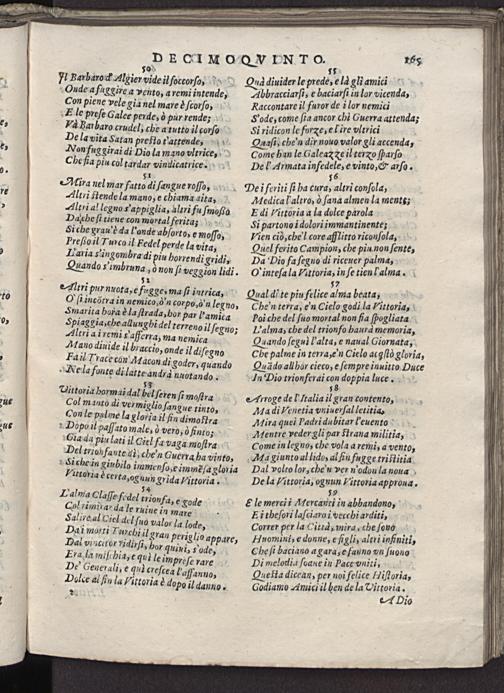 DECIMOQVINTO. 165
50
Il Barbaro d'Algier vide il soccorso,
Onde a fuggire a vento, a remi intende,
Con piene vele già nel mare è scorso,
E le prese Galee perde, ò pur rende;
Và Barbaro crudel, che a tutto il corso
De la vita Satan presto t'attende,
Non fuggirai di Dio la mano vltrice,
Che sia piu col tardar vindicatrice.
51
Mira nel mar fatto di sangue rosso,
Altri stende la mano, e chiama aita,
Altri al legno s'appiglia, altri fu smosso
Da che si tiene con mortal ferita;
Si che grau'è da l'onde absorto, e mosso,
Presso il Turco il Fedel perde la vita,
L'aria s'ingombra di piu horrendi gridi,
Quando s'imbruna, ò non si veggion lidi.
52
Altri pur nuota, e fugge, ma si intrica,
O' si incotra in nemico, ò'n corpo, ò'n legno,
Smarita hora è la strada, hor par l'amica
Spiaggia, che allunghi del terreno il segno;
Altri a i remi s'afferra, ma nemica
Mano diuide il braccio, onde il disegno
Fa il Trace con Macon di goder, quando
Ne la fonte di latte andrà nuotando.
53
Vittoria hormai dal bel seren si mostra
Col manto di vermiglio sangue tinto,
Con le palme la gloria il fin dimostra
Dopo il passato male, ò vero, ò finto;
Già da piu lati il Ciel fa vaga mostra
Del trionfante dì, che'n Guerra ha vinto,
Si che in giubilo immenso, e immesa gloria
Vittoria è certa, ognun grida Vittoria.
54
L'alma Classe fedel trionfa, e gode
Col rimirar da le ruine in mare
Salire al Ciel del suo valor la lode,
Da i morti Turchi il gran periglio appare,
Dal vincitor ridirsi, hor quini, s'ode,
Era la mischia, e quì le imprese rare
De' Generali, e quì crescea l'affanno,
Dolce al fin la Vittoria è dopo il danno.
55
Quà diuider le prede, e là gli amici
Abbracciarsi, e baciarsi in lor vicenda,
Raccontare il furor de i lor nemici
S'ode, come sia ancor chi Guerra attenda;
Si ridicon le forze, e l'ire vltrici
Quasi, che'n dir nouo valor gli accenda,
Come han le Galeazze il terzo sparso
De l'Armata infedele, e vinto, & arso.
56
De i feriti si ha cura, altri consola,
Medica l'altro, ò sana almen la ment;
E di Vittoria a la dolce parola
Si partono i dolori immantinente;
Vien ciò, che'l core afflitto riconsola,
Quel ferito Campion, che piu non sente,
Da Dio fa segno di riceuer palma,
O' intesa la Vittoria, in se tien l'alma.
57
Qual di te piu felice alma beata,
Che'n terra, e'n Cielo godi la Vittoria,
Poi che del suo mortal non sia spogliata
L'alma, che del trionfo haurà memoria,
Quando seguì l'alta, e naual Giornata,
Che palme in terra, e'n Cielo acqstò gloria,
Quādo allhor cieco, e sempre inuitto Duce
In Dio trionferai con doppia luce.
58
Arroge de l'Italia il gran contento,
Ma di Venetia vniuersal letitia,
Mira quei Padri dubitar l'euento
Mentre veder gli par strana militia,
Come in legno, che vola a remi, a vento,
Ma giunto al lido, al fin fugge tristitia
Dal volto lor, che'n ver n'odon la noua
De la Vittoria, ognun Vittoria approua.
59
E le merci i Mercanti in abbandono,
E i thesori lasciaro i vecchi arditi,
Correr per la Città, mira, che sono
Huomini, e donne, e figli, altri infiniti,
Che si baciano a gara, e fanno vn suono
Di melodia soane in Pace vniti,
Questa dicean, per noi felice Historia,
Godiamo Amici il ben de la Vittoria.
A Dio